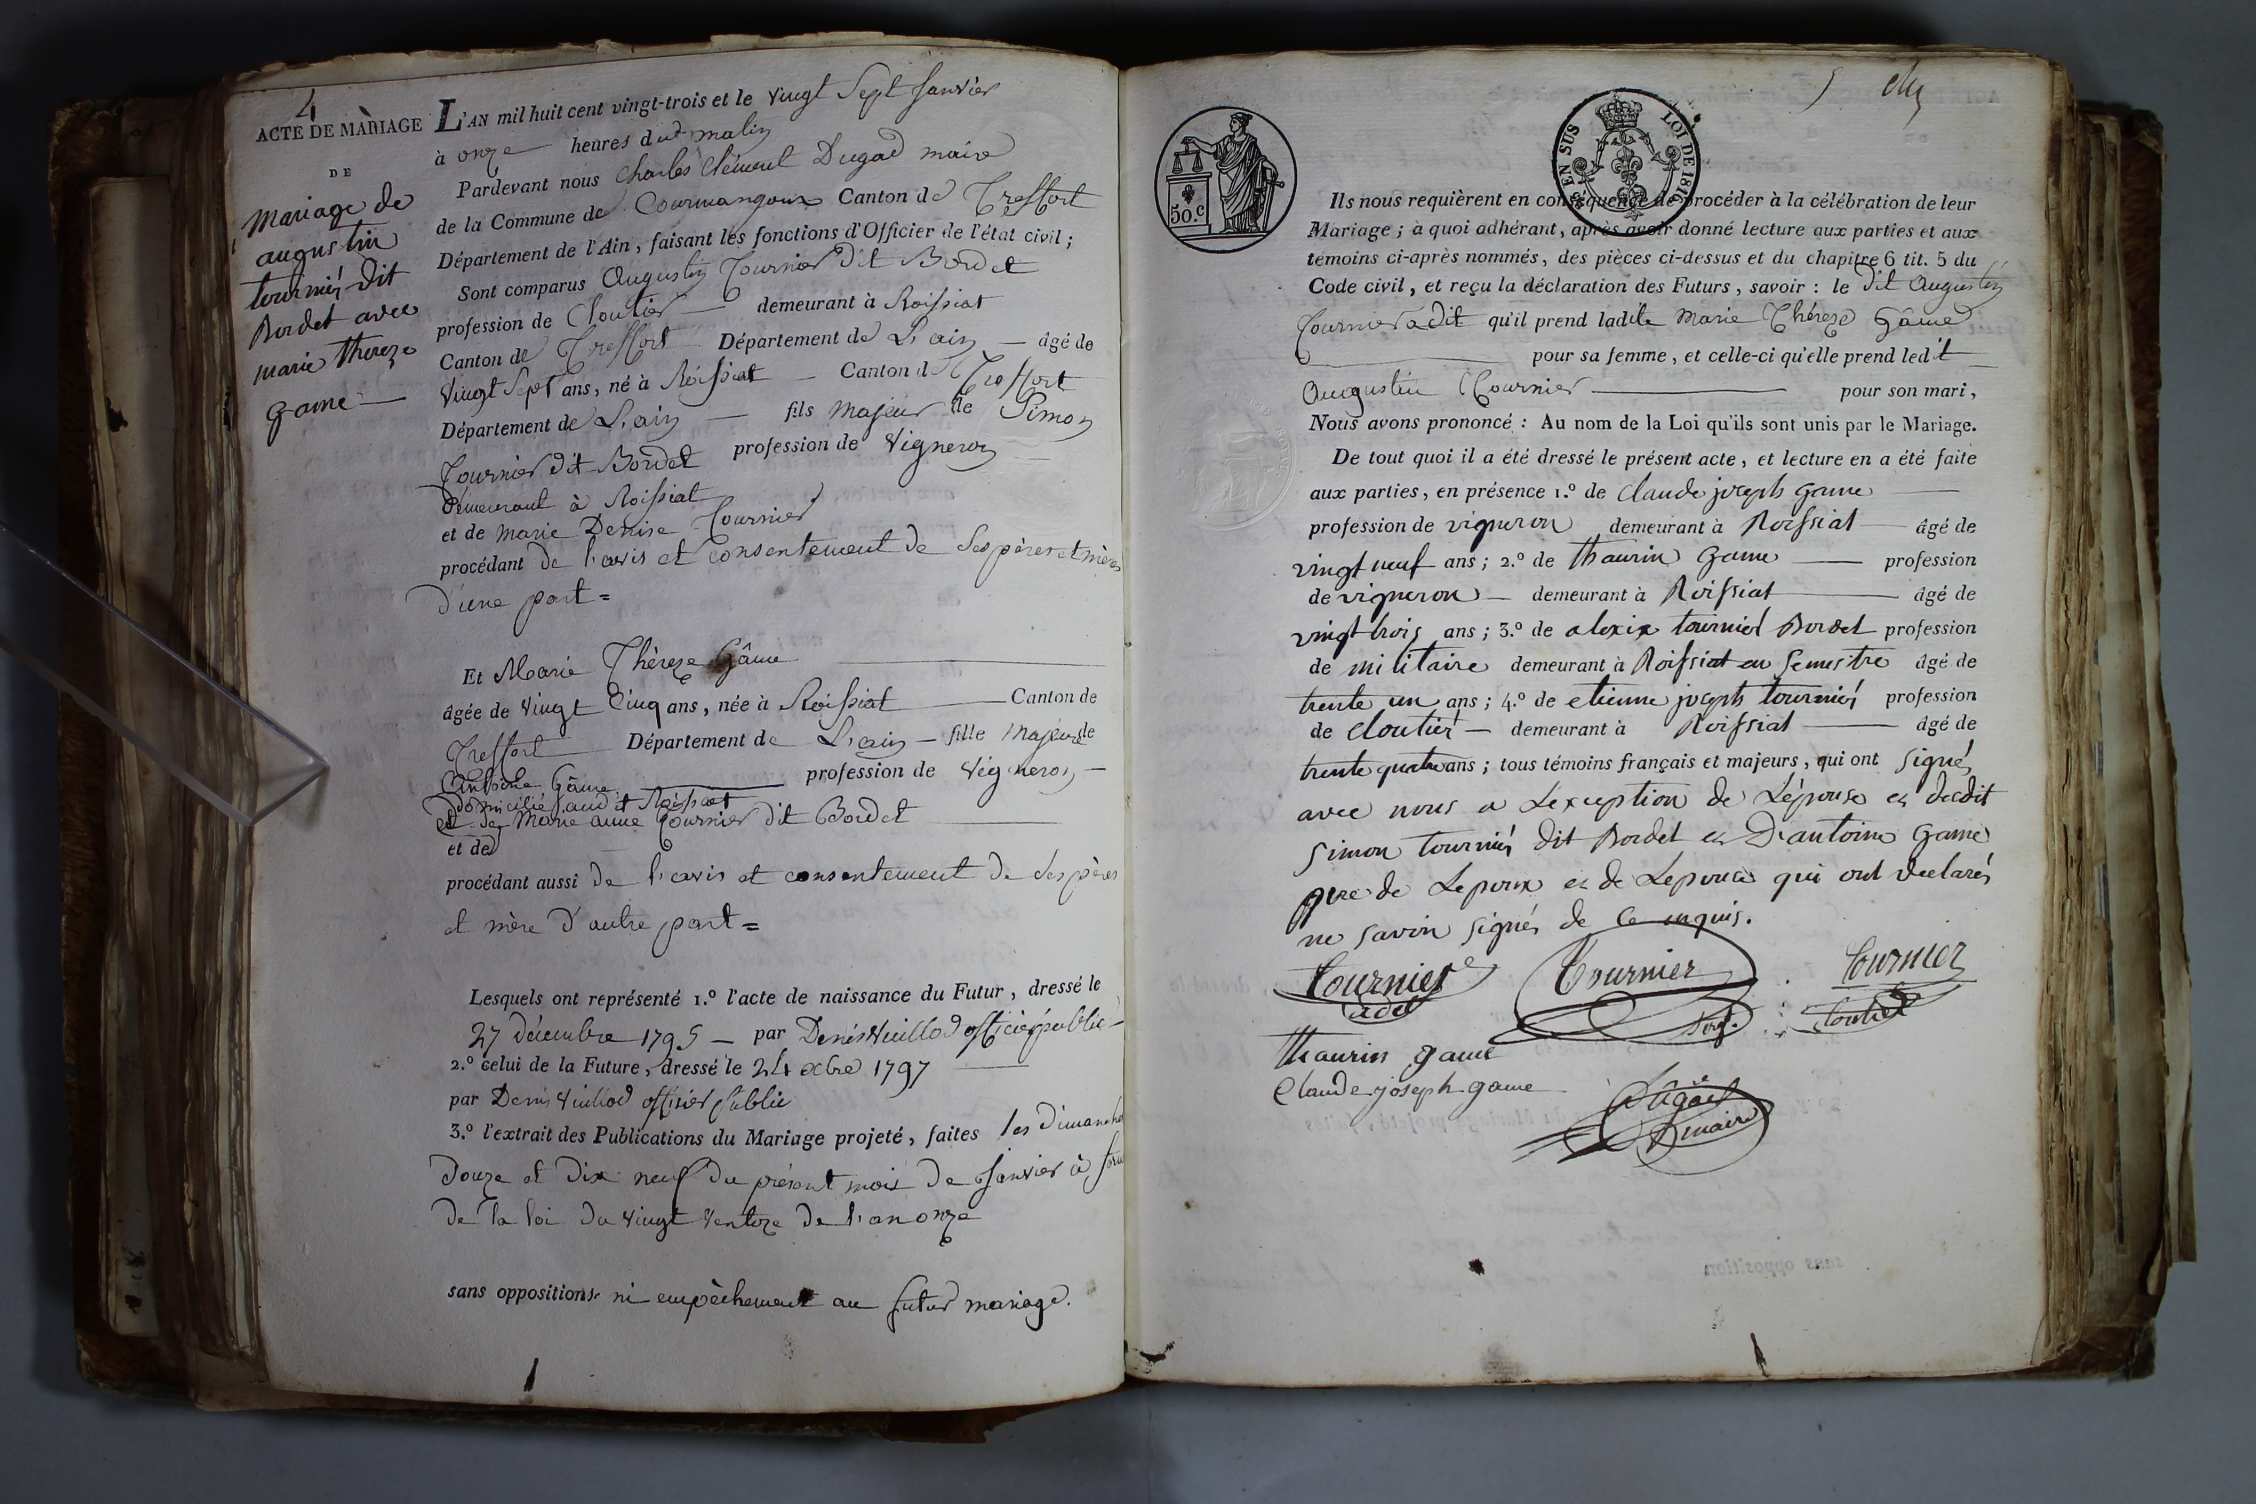 4
ACTE DE MARIAGE
DE
Mariage de
augustin
tournier dit
Bordet avec
marie thereze
game
L'AN mil huit cent vingt-trois et le vingt Sept Janvier
à onze heures du matin
Pardevant nous Charles Clément Dugad maire
de la Commune de Courmangoux Canton de Treffort
Département de l'Ain, faisant les fonctions d'Officier de l'état civil;
Sont comparus Augustin Tournier dit Bordet
profession de Cloutier demeurant à Roissiat
Canton de Treffort Département de L'ain âgé de
vingt Sept ans, né à Roissiat Canton de Treffort
Département de L'ain fils majeur de Simon
Tournier dit Bordet profession de Vigneron
demeurant à Roissiat
et de Marie Denise Tournier
procédant de l'avis et consentement de Ses pères et mères
d'une part =
Et Marie Thèreze Gâme
âgée de vingt Cinq ans, née à Roissiat Canton de
Treffort Département de L'ain fille Majeure de
Antoine Gâme profession de Vigneron
domicilié audit Roissiat
et de Marie anne Tournier dit Bordet
et de
procédant aussi de l'avis et consentement de Ses pères
et mère d'autre part =
Lesquels ont représenté 1.º l'acte de naissance du Futur, dressé le
27 décembre 1795 par Denis Vuillod officier public
2.º celui de la Future, dressé le 24 xbre 1797
par Denis Vuillod officier public
3.º l'extrait des Publications du Mariage projeté, faites les Dimanche
douze et dix neuf du présent mois de Janvier à
de la loi du vingt Ventoze de l'an onze
sans oppositions ni empêchement au futur mariage.
5
50.c
EN SUS LOI DE 1816
Ils nous requièrent en conséquence de procéder à la célébration de leur
Mariage; à quoi adhérant, après avoir donné lecture aux parties et aux
témoins ci-après nommés, des pièces ci-dessus et du chapitre 6 tit. 5 du
Code civil, et reçu la déclaration des Futurs, savoir: le dit Augustin
Tournier a dit qu'il prend ladite Marie Thérèze Gâme
pour sa femme, et celle-ci qu'elle prend ledit
Augustin Tournier pour son mari,
Nous avons prononcé: Au nom de la Loi qu'ils sont unis par le Mariage.
De tout quoi il a été dressé le présent acte, et lecture en a été faite
aux parties, en présence 1.º de Claude joseph game
profession de vigneron demeurant à Roissiat âgé de
vingt neuf ans; 2.º de thaurin game profession
de vigneron demeurant à Roissiat âgé de
vingt trois ans; 3.º de alexix tournier Bordet profession
de militaire demeurant à Roissiat en Semestre âgé de
trente un ans; 4.º de etienne joseph tournier profession
de Cloutier demeurant à Roissiat âgé de
trente quatre ans; tous témoins français et majeurs, qui ont signé
avec nous a Lexception de Lépouse es decdit
simon tournier dit Bordet es D'antoine game
pere de Lepoux es de Lepouce qui ont declarés
ne savoir signés de ce enquis.
Tournier Tournier Tournier
Thaurin game
Claude joseph game
Dugad
maire